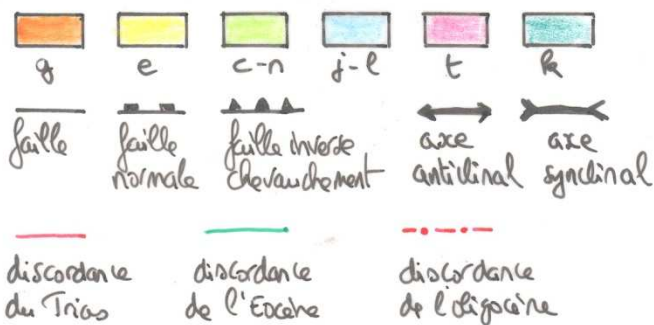 g e c-n j-l t k
faille faille normale faille inverse chevauchement axe anticlinal axe synclinal
discordance du Trias discordance de l'Eocène discordance de l'oligocène